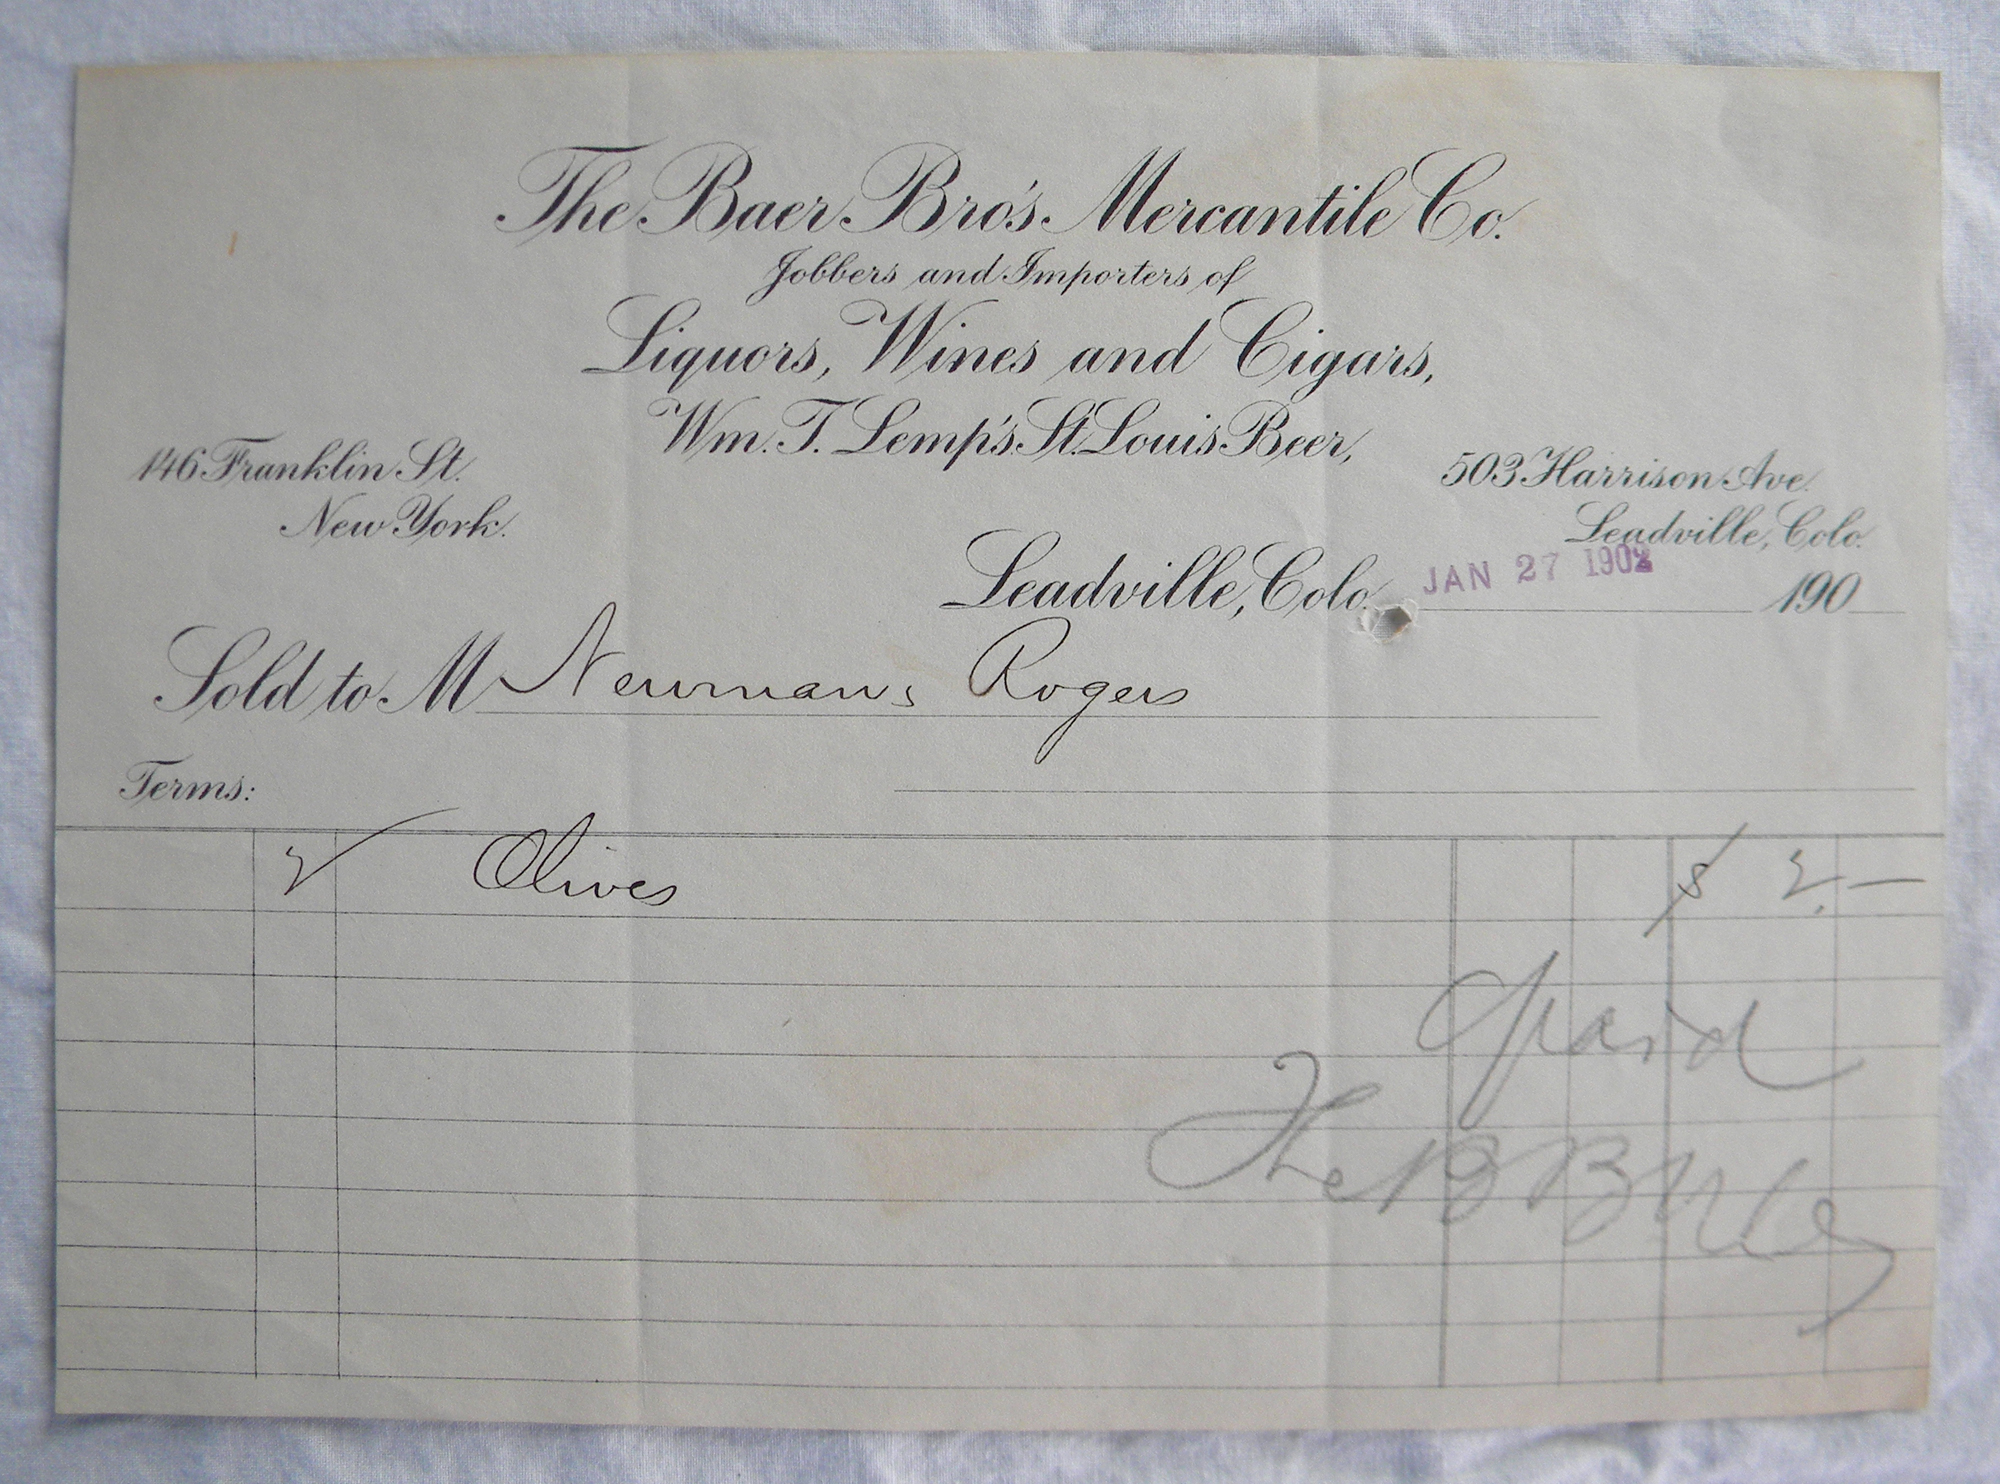 The Baer Bro's. Mercantile Co.
Jobbers and Importers of
Liquors, Wines and Cigars,
Wm. T. Lemp's St. Louis Beer,
146 Franklin St.
New York.
503 Harrison Ave.
Leadville, Colo.
Leadville, Colo. JAN 27 1902 190
Sold to M Newman & Rogers
Terms:
2 Olives $ 2.—
Paid
The B B M Co